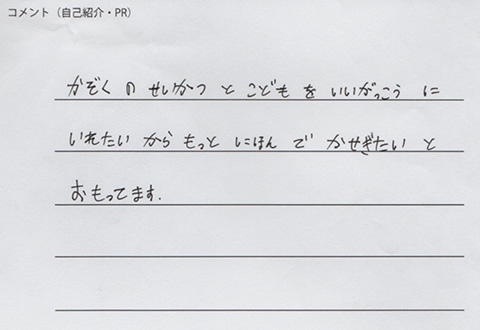 コメント（自己紹介・PR）
かぞく の せいかつ と こども を いいがっこう に
いれたい から もっと にほん で かせぎたい と
おもってます.